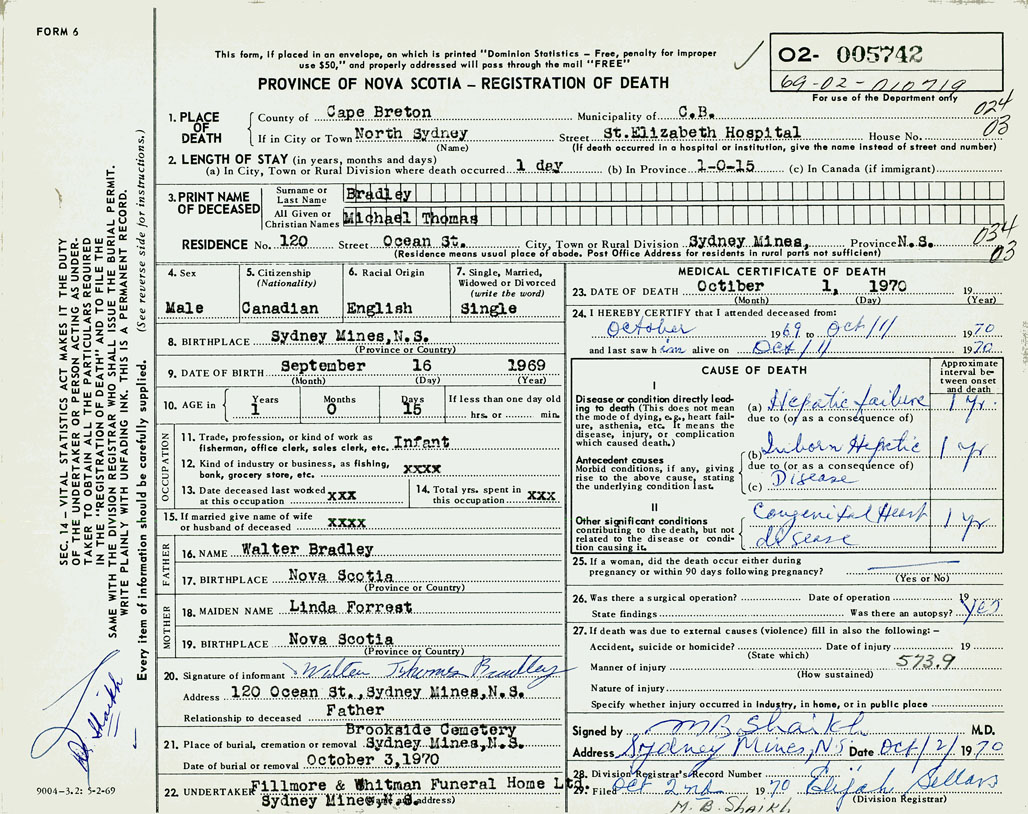 FORM 6
This form, if placed in an envelope, on which is printed "Dominion Statistics – Free, penalty for improper
use $50," and properly addressed will pass through the mail "FREE"
PROVINCE OF NOVA SCOTIA – REGISTRATION OF DEATH
02- 005742
69-02-010719
For use of the Department only
024
03
1. PLACE OF DEATH
County of Cape Breton Municipality of C.B.
If in City or Town North Sydney Street St.Elizabeth Hospital House No.
(Name) (If death occurred in a hospital or institution, give the name instead of street and number)
2. LENGTH OF STAY (in years, months and days)
(a) In City, Town or Rural Division where death occurred 1 day (b) In Province 1-0-15 (c) In Canada (if immigrant)
3. PRINT NAME OF DECEASED
Surname or Last Name Bradley
All Given or Christian Names Michael Thomas
RESIDENCE No. 120 Street Ocean St. City, Town or Rural Division Sydney Mines, Province N.S.
(Residence means usual place of abode. Post Office Address for residents in rural parts not sufficient)
034
03
4. Sex
Male
5. Citizenship
(Nationality)
Canadian
6. Racial Origin
English
7. Single, Married,
Widowed or Divorced
(write the word)
Single
8. BIRTHPLACE Sydney Mines,N.S.
(Province or Country)
9. DATE OF BIRTH September 16 1969
(Month) (Day) (Year)
10. AGE in Years 1 Months 0 Days 15
If less than one day old
hrs. or min.
OCCUPATION
11. Trade, profession, or kind of work as
fisherman, office clerk, sales clerk, etc. Infant
12. Kind of industry or business, as fishing,
bank, grocery store, etc. xxxx
13. Date deceased last worked
at this occupation xxx
14. Total yrs. spent in
this occupation xxx
15. If married give name of wife
or husband of deceased xxxx
FATHER
16. NAME Walter Bradley
17. BIRTHPLACE Nova Scotia
(Province or Country)
MOTHER
18. MAIDEN NAME Linda Forrest
19. BIRTHPLACE Nova Scotia
(Province or Country)
20. Signature of informant Walter Thomas Bradley
Address 120 Ocean St.,Sydney Mines,N.S.
Relationship to deceased Father
Brookside Cemetery
21. Place of burial, cremation or removal Sydney Mines,N.S.
Date of burial or removal October 3,1970
22. UNDERTAKER Fillmore & Whitman Funeral Home Ltd.
Sydney Mines,N.S.
(Name and address)
MEDICAL CERTIFICATE OF DEATH
23. DATE OF DEATH Octiber 1, 1970 19
(Month) (Day) (Year)
24. I HEREBY CERTIFY that I attended deceased from:
October 1969 to Oct/1/ 1970
and last saw him alive on Oct/1/ 1970
CAUSE OF DEATH
Approximate
interval be-
tween onset
and death
I
Disease or condition directly lead-
ing to death (This does not mean
the mode of dying, e.g., heart fail-
ure, asthenia, etc. It means the
disease, injury, or complication
which caused death.)
(a) Hepatic failure 1 yr.
due to (or as a consequence of)
Antecedent causes
Morbid conditions, if any, giving
rise to the above cause, stating
the underlying condition last.
(b) Inborn Hepatic 1 yr
due to (or as a consequence of)
(c) Disease
II
Other significant conditions
contributing to the death, but not
related to the disease or condi-
tion causing it.
Congenital Heart 1 yr
disease
25. If a woman, did the death occur either during
pregnancy or within 90 days following pregnancy?
(Yes or No)
26. Was there a surgical operation? Date of operation 19
State findings Was there an autopsy? Yes
27. If death was due to external causes (violence) fill in also the following: –
Accident, suicide or homicide? Date of injury 19
(State which)
Manner of injury 573.9
(How sustained)
Nature of injury
Specify whether injury occurred in industry, in home, or in public place
Signed by MB Shaikh M.D.
Address Sydney Mines, NS Date Oct/2/ 1970
28. Division Registrar's Record Number
29. Filed Oct 2nd 1970 Elijah Sellars
(Division Registrar)
M.B. Shaikh
SEC. 14 – VITAL STATISTICS ACT MAKES IT THE DUTY
OF THE UNDERTAKER OR PERSON ACTING AS UNDER-
TAKER TO OBTAIN ALL THE PARTICULARS REQUIRED
IN THE "REGISTRATION OF DEATH" AND TO FILE THE
SAME WITH THE DIVISION REGISTRAR WHO SHALL ISSUE THE BURIAL PERMIT.
WRITE PLAINLY WITH UNFADING INK. THIS IS A PERMANENT RECORD.
Every item of information should be carefully supplied. (See reverse side for instructions.)
Dr. Shaikh
9004-3.2: 5-2-69